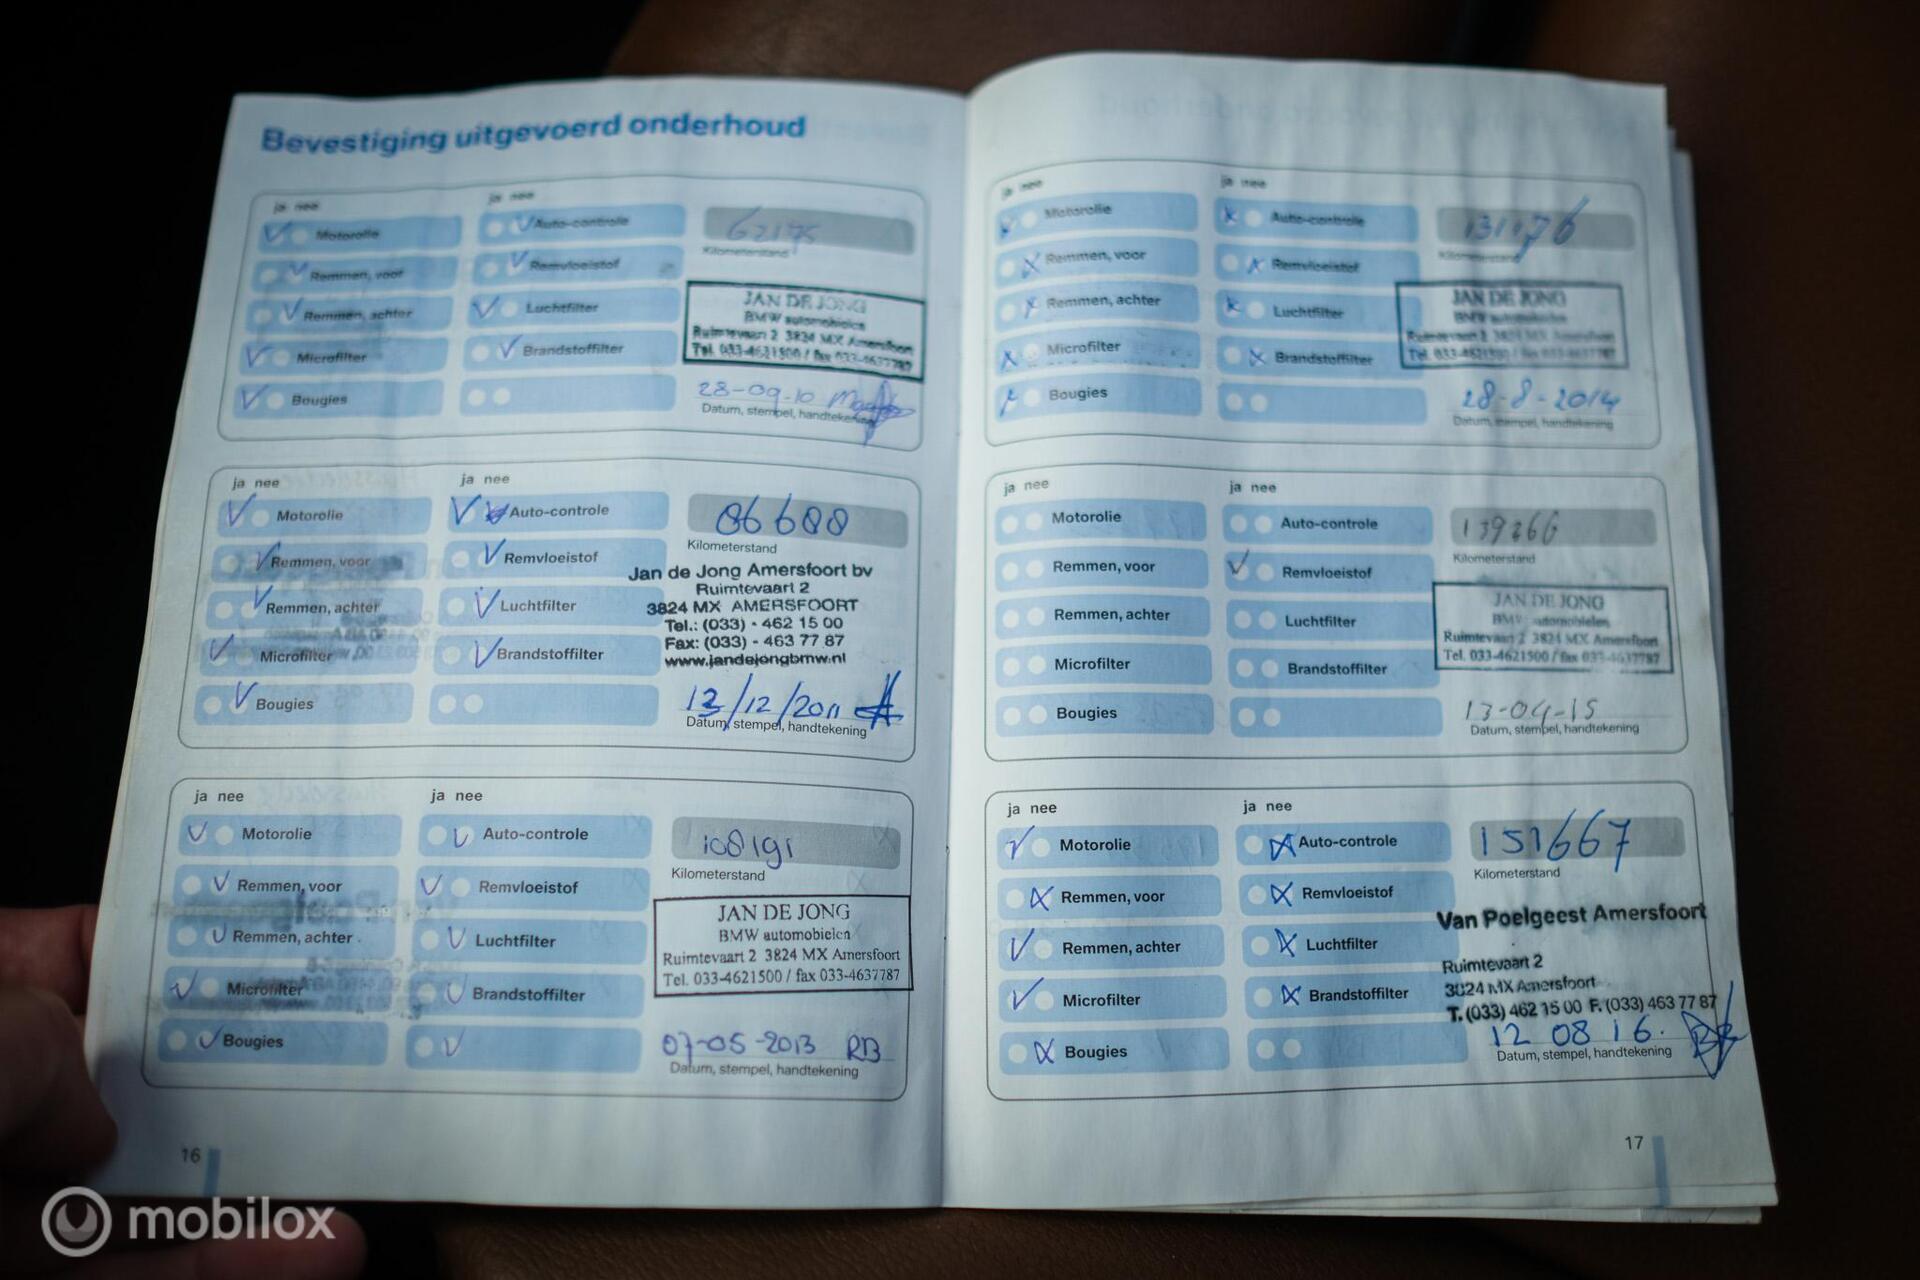 Bevestiging uitgevoerd onderhoud
ja nee
ja nee
Motorolie
Auto-controle
62175
Kilometerstand
Remmen, voor
Remvloeistof
Remmen, achter
Luchtfilter
JAN DE JONG
BMW automobielen
Ruimtevaart 2 3824 MX Amersfoort
Tel. 033-4621500 / fax 033-4637787
Microfilter
Brandstoffilter
Bougies
28-09-10
Datum, stempel, handtekening
ja nee
ja nee
Motorolie
Auto-controle
86688
Kilometerstand
Remmen, voor
Remvloeistof
Jan de Jong Amersfoort bv
Ruimtevaart 2
3824 MX AMERSFOORT
Tel.: (033) - 462 15 00
Fax: (033) - 463 77 87
www.jandejongbmw.nl
Remmen, achter
Luchtfilter
Microfilter
Brandstoffilter
Bougies
13/12/2011
Datum, stempel, handtekening
ja nee
ja nee
Motorolie
Auto-controle
108191
Kilometerstand
Remmen, voor
Remvloeistof
Remmen, achter
Luchtfilter
JAN DE JONG
BMW automobielen
Ruimtevaart 2 3824 MX Amersfoort
Tel. 033-4621500 / fax 033-4637787
Microfilter
Brandstoffilter
Bougies
07-05-2013 RB
Datum, stempel, handtekening
16
ja nee
ja nee
Motorolie
Auto-controle
131176
Kilometerstand
Remmen, voor
Remvloeistof
Remmen, achter
Luchtfilter
JAN DE JONG
BMW automobielen
Ruimtevaart 2 3824 MX Amersfoort
Tel. 033-4621500 / fax 033-4637787
Microfilter
Brandstoffilter
Bougies
28-8-2014
Datum, stempel, handtekening
ja nee
ja nee
Motorolie
Auto-controle
139266
Kilometerstand
Remmen, voor
Remvloeistof
Remmen, achter
Luchtfilter
JAN DE JONG
BMW automobielen
Ruimtevaart 2 3824 MX Amersfoort
Tel. 033-4621500 / fax 033-4637787
Microfilter
Brandstoffilter
Bougies
13-04-15
Datum, stempel, handtekening
ja nee
ja nee
Motorolie
Auto-controle
151667
Kilometerstand
Remmen, voor
Remvloeistof
Van Poelgeest Amersfoort
Ruimtevaart 2
3824 MX Amersfoort
T. (033) 462 15 00 F. (033) 463 77 87
Remmen, achter
Luchtfilter
Microfilter
Brandstoffilter
Bougies
12 08 16.
Datum, stempel, handtekening
17
mobilox